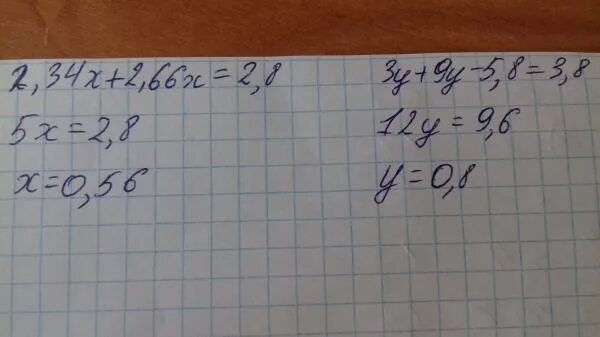 2,34x+2,66x=2,8
5x=2,8
x=0,56
3y+9y-5,8=3,8
12y=9,6
y=0,8